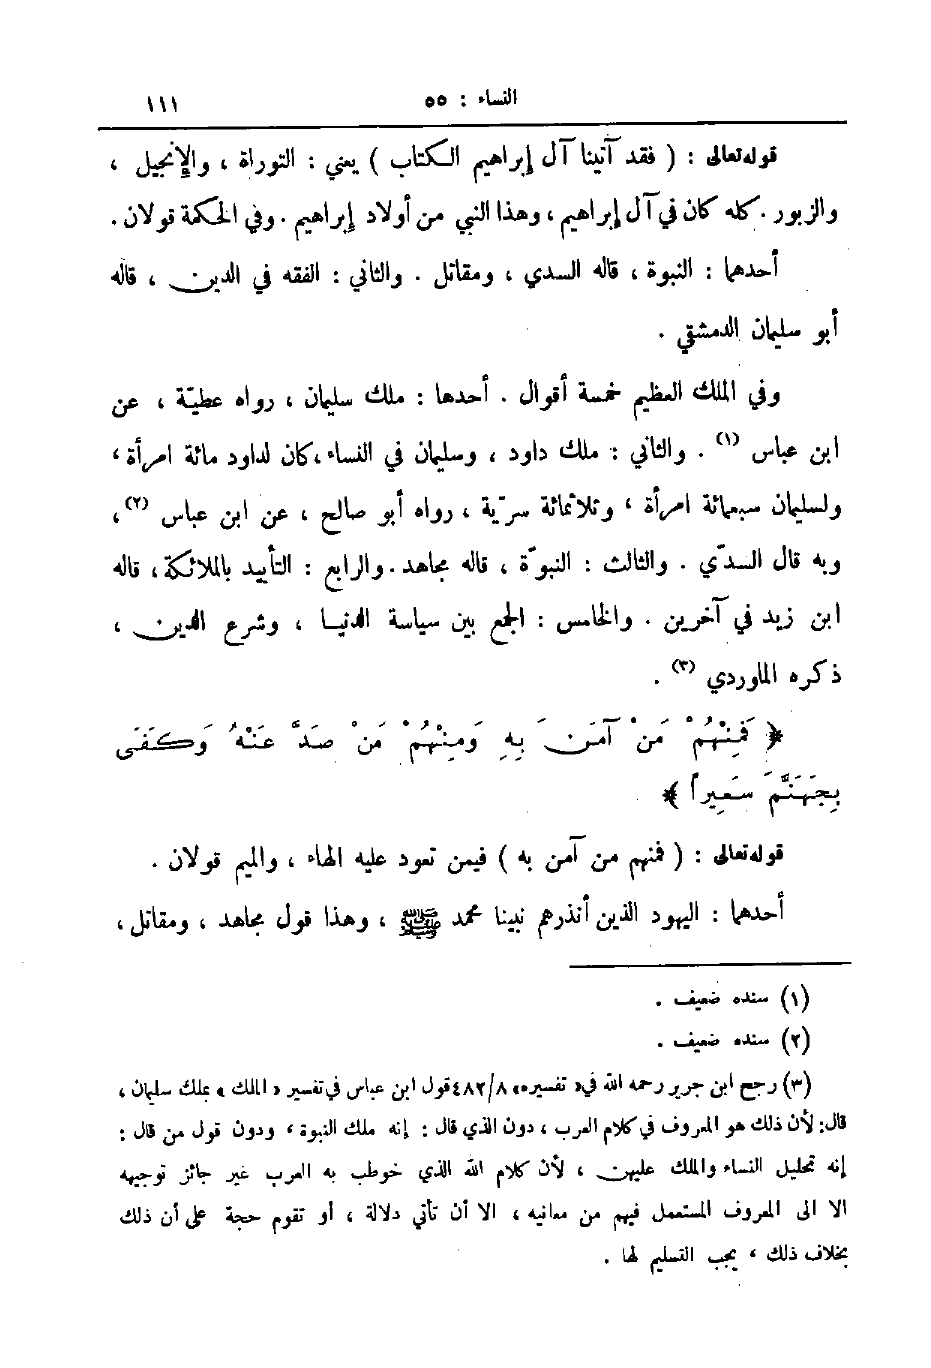 النساء : ٥٥ ١١١
قوله تعالى : ( فقد آتينا آل إبراهيم الكتاب ) يعني : التوراة ، والإنجيل ،
والزبور . كله كان في آل إبراهيم ، وهذا النبي من أولاد إبراهيم . وفي الحكمة قولان .
أحدهما : النبوة ، قاله السدي ، ومقاتل . والثاني : الفقه في الدين ، قاله
أبو سليمان الدمشقي .
وفي الملك العظيم خمسة أقوال . أحدها : ملك سليمان ، رواه عطيّة ، عن
ابن عباس (١) . والثاني : ملك داود ، وسليمان في النساء ، كان لداود مائة امرأة ،
ولسليمان سبعمائة امرأة ، وثلاثمائة سرّية ، رواه أبو صالح ، عن ابن عباس (٢) ،
وبه قال السدّي . والثالث : النبوّة ، قاله مجاهد . والرابع : التأييد بالملائكة ، قاله
ابن زيد في آخرين . والخامس : الجمع بين سياسة الدنيا ، وشرع الدين ،
ذكره الماوردي (٣) .
﴿ فَمِنْهُمْ مَنْ آمَنَ بِهِ وَمِنْهُمْ مَنْ صَدَّ عَنْهُ وَكَفَى
بِجَهَنَّمَ سَعِيراً ﴾
قوله تعالى : ( فمنهم من آمن به ) فيمن تعود عليه الهاء ، والميم قولان .
أحدهما : اليهود الذين أنذرهم نبينا محمد ﷺ ، وهذا قول مجاهد ، ومقاتل ،
(١) سنده ضعيف .
(٢) سنده ضعيف .
(٣) رجح ابن جرير رحمه الله في « تفسيره » ٨/٤٨٢ قول ابن عباس في تفسير « الملك » بملك سليمان ،
قال : لأن ذلك هو المعروف في كلام العرب ، دون الذي قال : إنه ملك النبوة ، ودون قول من قال :
إنه تحليل النساء والملك عليهن ، لأن كلام الله الذي خوطب به العرب غير جائز توجيهه
الا الى المعروف المستعمل فيهم من معانيه ، الا أن تأتي دلالة ، أو تقوم حجة على أن ذلك
بخلاف ذلك ، يجب التسليم لها .